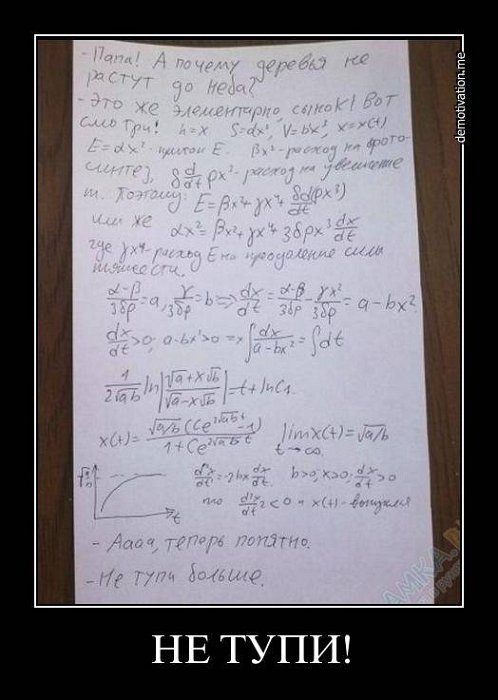 - Папа! А почему деревья не
растут до неба?
- Это же элементарно, сынок! Вот
смотри! h=x S=αx², V=bx³, x=x(t)
E=αx² - приток E. βx² - расход на фото-
синтез, δ d/dt ρx³ - расход на увеличение
m. Поэтому: E=βx²+γx⁴+δd/dt(ρx³)
или же αx²=βx²+γx⁴+3δρx² dx/dt
где γx⁴ - расход E на преодоление силы
тяжести,
α-β/3δρ = a, γ/3δρ = b ⇒ dx/dt = α-β/3δρ - γx²/3δρ = a - bx².
dx/dt>0; a-bx²>0 ⇒ ∫dx/a-bx² = ∫dt
1/2√ab ln|√a+x√b/√a-x√b| = t+lnC₁.
x(t) = √a/b (Ce^2√ab t -1)/1+Ce^2√ab t lim x(t) = √a/b
t→∞
√a/b d²x/dt² = -2bx dx/dt. b>0; x>0; dx/dt>0
то d²x/dt² < 0 и x(t) - выпуклая
t
- Аааа, теперь понятно.
- Не тупи больше.
НЕ ТУПИ!
demotivation.me